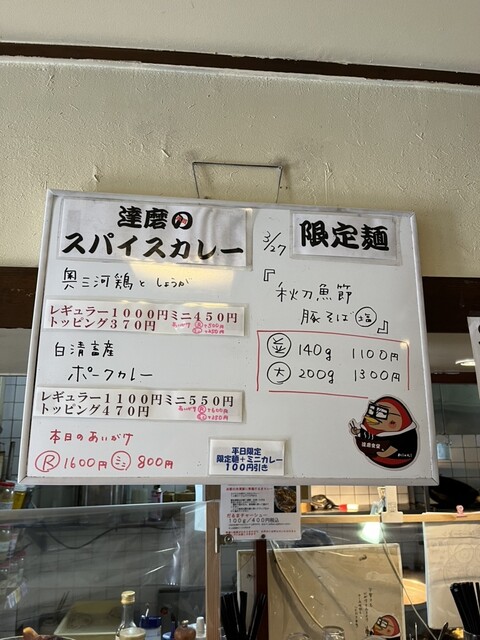 達磨の
スパイスカレー
奥三河鶏としょうが
レギュラー1000円ミニ450円
トッピング370円
白清畜産
ポークカレー
レギュラー1100円ミニ550円
トッピング470円
本日のあいがけ
Ⓡ1600円 ミニ 800円
3/27
限定麺
『秋刀魚節
豚そば 塩』
並 140g 1100円
大 200g 1300円
平日限定
限定麺+ミニカレー
100円引き
100g/400円税込